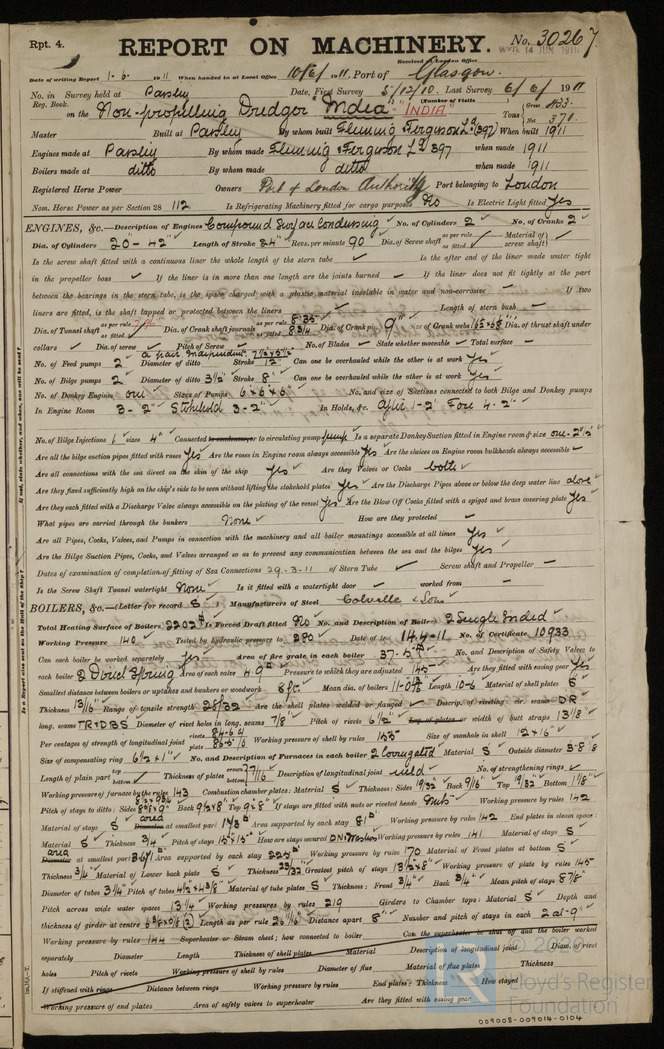 Rpt. 4.
REPORT ON MACHINERY.
No. 30267.
Received at London Office
WED. 14 JUN. 1911
Date of writing Report 1.6.1911 When handed in at Local Office 10/6/1911 Port of Glasgow.
No. in Survey held at Paisley Date, First Survey 5/12/10 Last Survey 6/6/1911
Reg. Book. (Number of Visits
on the Non-propelling Dredger "India" = "INDIA" Tons Gross 1133 Net 370
Master Built at Paisley By whom built Fleming & Ferguson Ld (397) When built 1911
Engines made at Paisley By whom made Fleming & Ferguson Ld 397 when made 1911
Boilers made at ditto By whom made ditto when made 1911
Registered Horse Power Owners Port of London Authority Port belonging to London
Nom. Horse Power as per Section 28 112 Is Refrigerating Machinery fitted for cargo purposes No Is Electric Light fitted Yes
ENGINES, &c.—Description of Engines Compound Surface Condensing No. of Cylinders 2 No. of Cranks 2
Dia. of Cylinders 20-42" Length of Stroke 24" Revs. per minute 90 Dia. of Screw shaft as per rule as fitted Material of screw shaft
Is the screw shaft fitted with a continuous liner the whole length of the stern tube Is the after end of the liner made water tight
in the propeller boss If the liner is in more than one length are the joints burned If the liner does not fit tightly at the part
between the bearings in the stern tube, is the space charged with a plastic material insoluble in water and non-corrosive If two
liners are fitted, is the shaft lapped or protected between the liners Length of stern bush
Dia. of Tunnel shaft as per rule as fitted Dia. of Crank shaft journals as per rule 8.35 as fitted 8 3/4 Dia. of Crank pin 9" Size of Crank webs Dia. of thrust shaft under
collars Dia. of screw Pitch of Screw No. of Blades State whether moveable Total surface
No. of Feed pumps 2 a pair Independent Diameter of ditto Stroke 12" Can one be overhauled while the other is at work Yes
No. of Bilge pumps 2 Diameter of ditto 3 1/2" Stroke 8" Can one be overhauled while the other is at work Yes
No. of Donkey Engines one Sizes of Pumps 6"x6"x6" No. and size of Suctions connected to both Bilge and Donkey pumps
In Engine Room 3 - 2" Stokehold 3-2" In Holds, &c. After 1-2" Fore 4-2"
No. of Bilge Injections 1 sizes 4" Connected to condenser, or to circulating pump pump Is a separate Donkey Suction fitted in Engine room & size one-2 1/2"
Are all the bilge suction pipes fitted with roses Yes Are the roses in Engine room always accessible Yes Are the sluices on Engine room bulkheads always accessible
Are all connections with the sea direct on the skin of the ship Yes Are they Valves or Cocks both
Are they fixed sufficiently high on the ship's side to be seen without lifting the stokehold plates Yes Are the Discharge Pipes above or below the deep water line above
Are they each fitted with a Discharge Valve always accessible on the plating of the vessel Yes Are the Blow Off Cocks fitted with a spigot and brass covering plate Yes
What pipes are carried through the bunkers None How are they protected
Are all Pipes, Cocks, Valves, and Pumps in connection with the machinery and all boiler mountings accessible at all times Yes
Are the Bilge Suction Pipes, Cocks, and Valves arranged so as to prevent any communication between the sea and the bilges Yes
Dates of examination of completion of fitting of Sea Connections 29-3-11 of Stern Tube Screw shaft and Propeller
Is the Screw Shaft Tunnel watertight None Is it fitted with a watertight door worked from
BOILERS, &c.—(Letter for record S) Manufacturers of Steel Colville & Sons
Total Heating Surface of Boilers 2202 Is Forced Draft fitted No No. and Description of Boilers 2 Single Ended
Working Pressure 140 Tested by hydraulic pressure to 280 Date of test 14.4.11 No. of Certificate 10933
Can each boiler be worked separately Yes Area of fire grate in each boiler No. and Description of Safety Valves to
each boiler 2 Direct Spring Area of each valve 4.9" Pressure to which they are adjusted 145 Are they fitted with easing gear Yes
Smallest distance between boilers or uptakes and bunkers or woodwork 8 ft. Mean dia. of boilers Length 10-6 Material of shell plates S
Thickness 13/16" Range of tensile strength 28/32 Are the shell plates welded or flanged Descrip. of riveting: cir. seams DR
long. seams TR+DBS Diameter of rivet holes in long. seams 7/8" Pitch of rivets 6 1/2" Lap of plates or width of butt straps 13 1/8"
Per centages of strength of longitudinal joint rivets plate Working pressure of shell by rules Size of manhole in shell 12"x16"
Size of compensating ring 6 1/2 x 1" No. and Description of Furnaces in each boiler 2 Corrugated Material S Outside diameter 3-8 1/8
Length of plain part top bottom Thickness of plates crown bottom 7/16" Description of longitudinal joint weld No. of strengthening rings
Working pressure of furnace by the rules 143 Combustion chamber plates: Material S Thickness: Sides 19/32" Back 9/16" Top 19/32" Bottom
Pitch of stays to ditto: Sides Back 9 1/2x8" Top If stays are fitted with nuts or riveted heads Nuts Working pressure by rules 142
Material of stays S area Diameter at smallest part Area supported by each stay Working pressure by rules 142 End plates in steam space:
Material S Thickness 3/4" Pitch of stays 15"x15" How are stays secured DN+Washers Working pressure by rules 141 Material of stays S
area Diameter at smallest part Area supported by each stay 225 Working pressure by rules 170 Material of Front plates at bottom S
Thickness 3/4" Material of Lower back plate S Thickness 23/32" Greatest pitch of stays 13 1/2"x8" Working pressure of plate by rules 145
Diameter of tubes 3 1/4" Pitch of tubes 4 1/2"x4 3/8" Material of tube plates S Thickness: Front 3/4" Back 3/4" Mean pitch of stays 8 7/8"
Pitch across wide water spaces 13 1/4" Working pressures by rules 219 Girders to Chamber tops: Material S Depth and
thickness of girder at centre Length as per rule Distance apart 8" Number and pitch of stays in each 2 at 9"
Working pressure by rules 144 Superheater or Steam chest; how connected to boiler Can the superheater be shut off and the boiler worked
separately Diameter Length Thickness of shell plates Material Description of longitudinal joint Diam. of rivet
holes Pitch of rivets Working pressure of shell by rules Diameter of flue Material of flue plates Thickness
If stiffened with rings Distance between rings Working pressure by rules End plates: Thickness How stayed
Working pressure of end plates Area of safety valves to superheater Are they fitted with easing gear
If not, state whether, and when, one will be sent?
Is a Report also sent on the Hull of the Ship?
Lloyd's Register
Foundation
009008-009014-0104